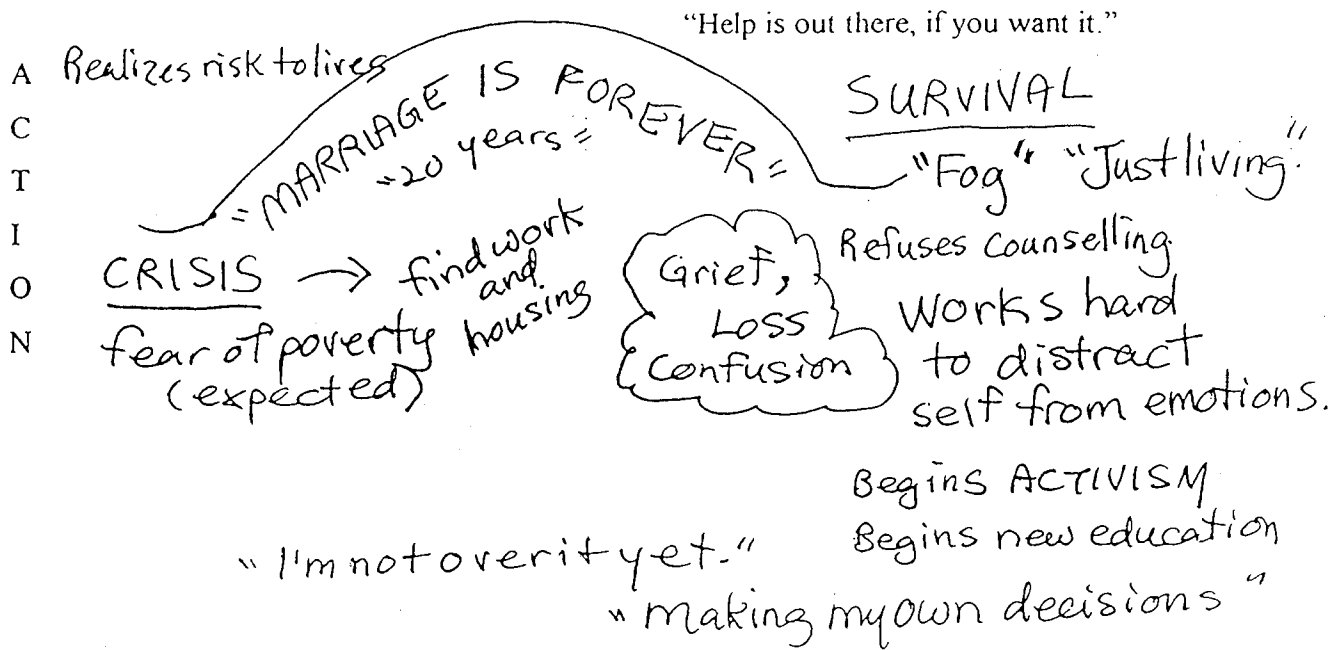 "Help is out there, if you want it."
ACTION
Realizes risk to lives
"MARRIAGE IS FOREVER"
"20 years"
SURVIVAL
"Fog" "Just living."
CRISIS → find work
and
housing
fear of poverty
(expected)
Grief,
Loss
Confusion
Refuses counselling.
Works hard
to distract
self from emotions.
Begins ACTIVISM
Begins new education
"I'm not over it yet."
"making my own decisions"